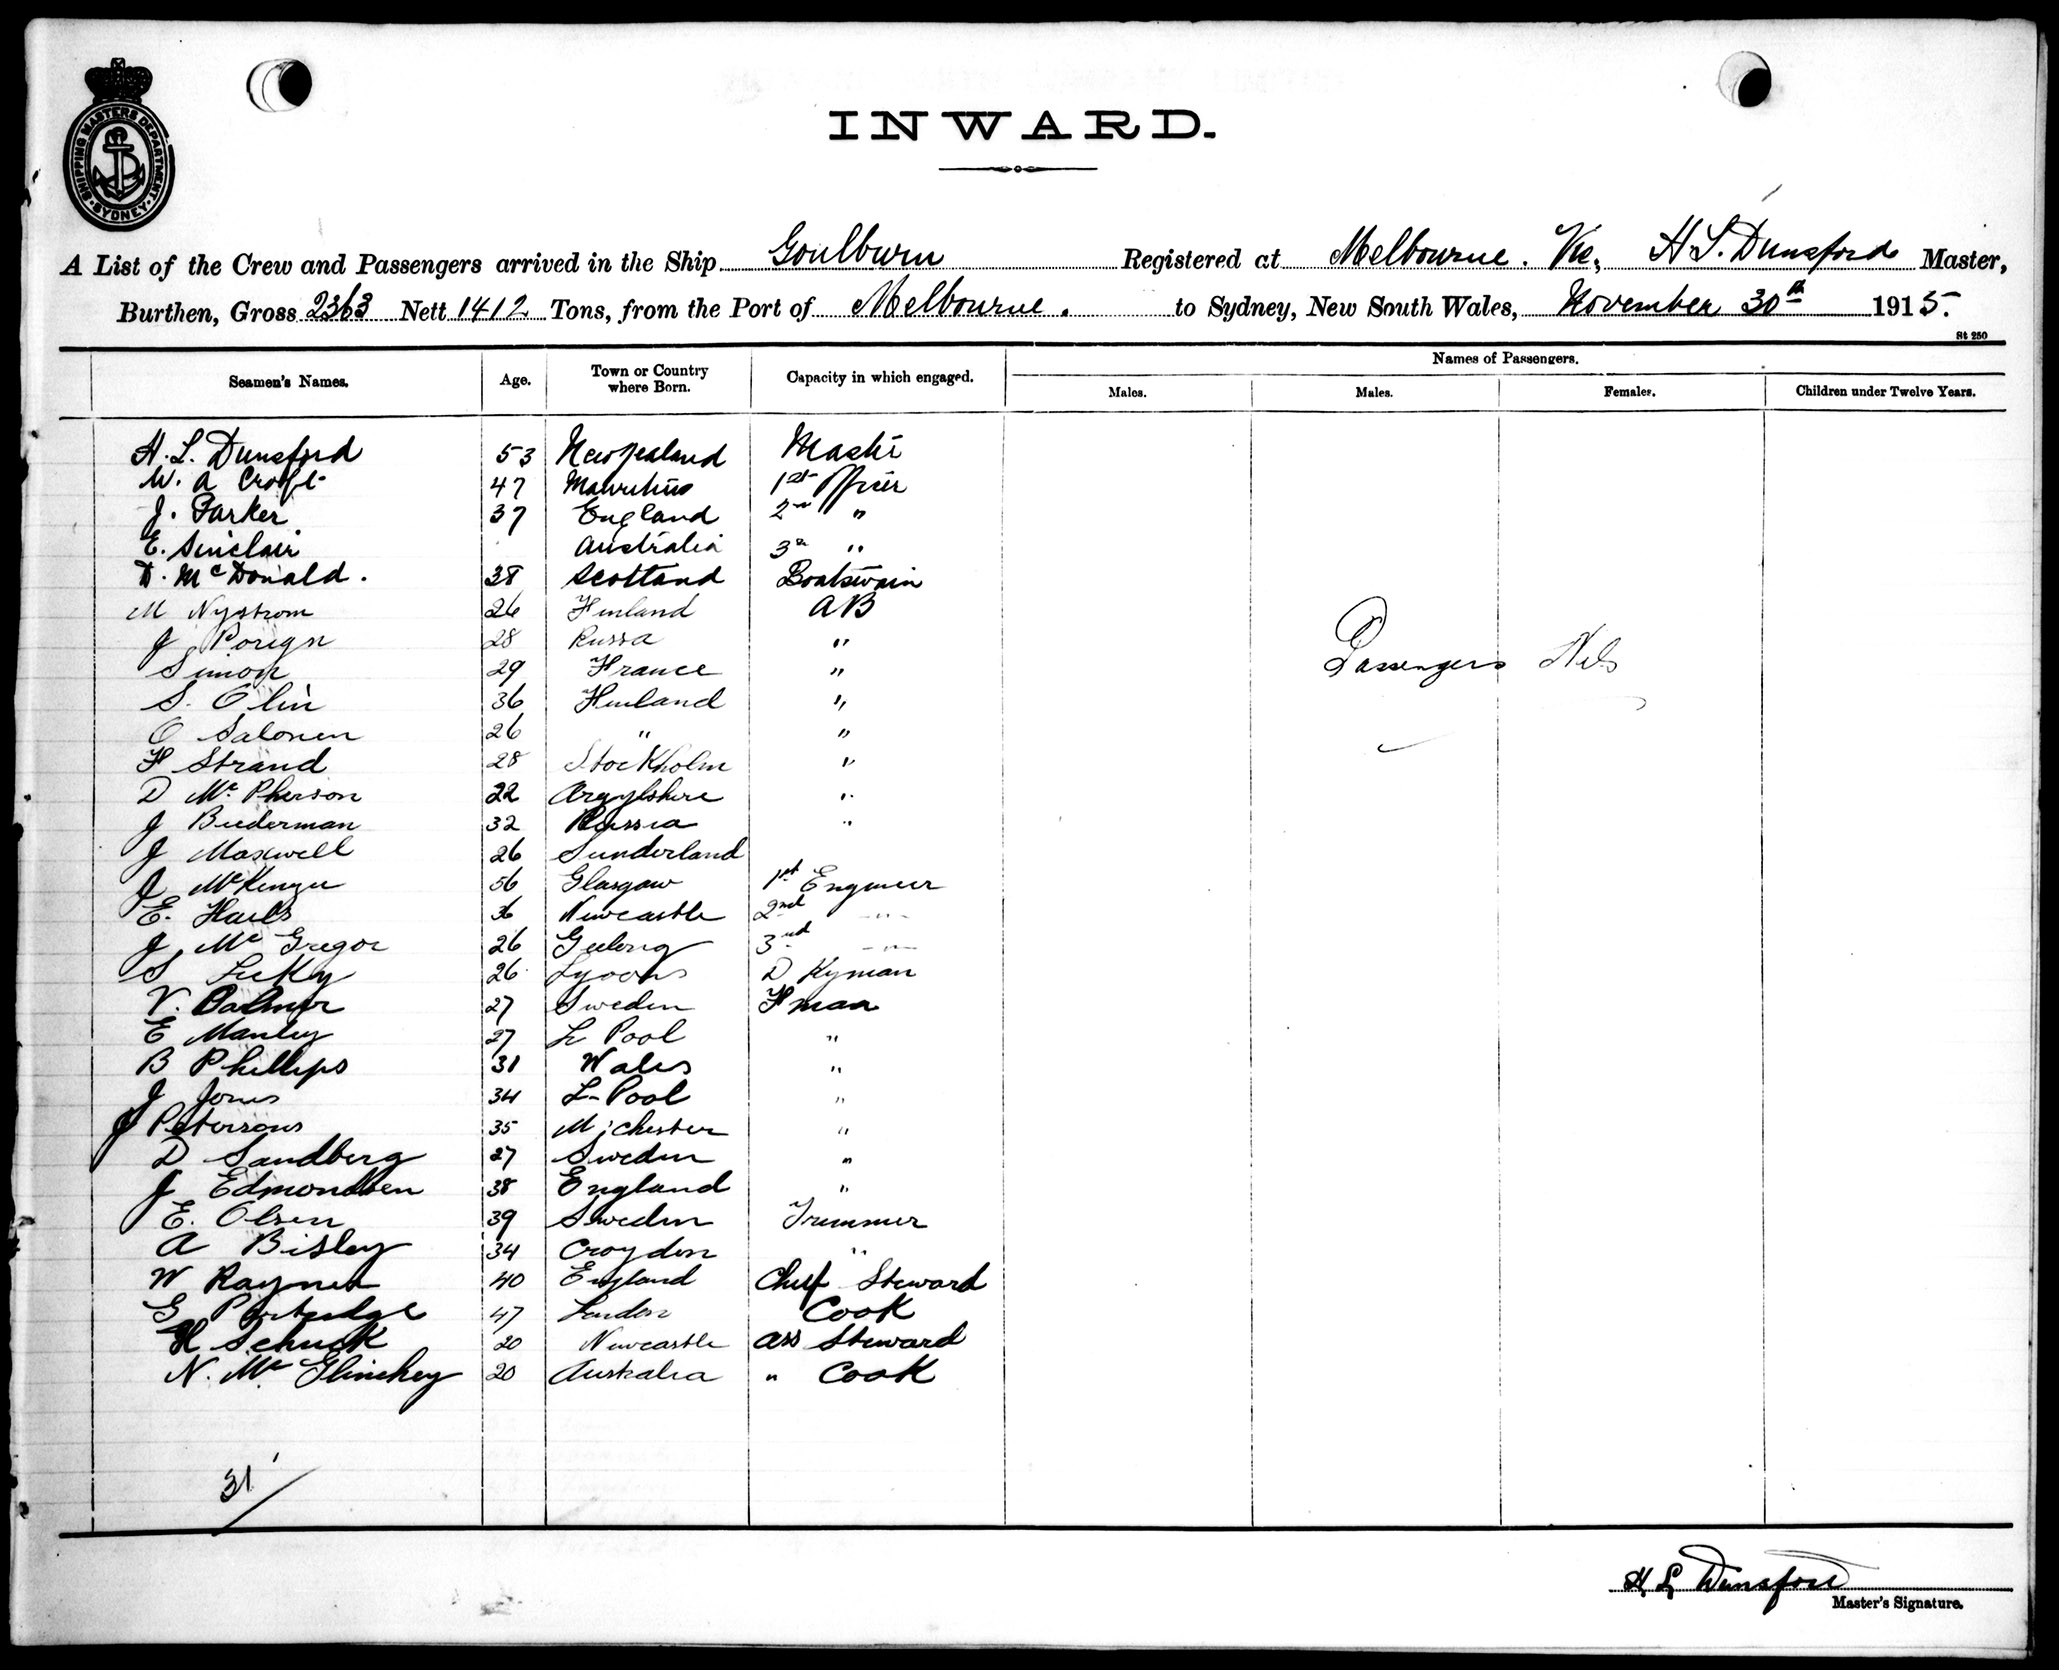 SHIPPING MASTERS DEPARTMENT
SYDNEY
INWARD.
A List of the Crew and Passengers arrived in the Ship Goulburn Registered at Melbourne. Vic, H L Dunsford Master,
Burthen, Gross 2363 Nett 1412 Tons, from the Port of Melbourne. to Sydney, New South Wales, November 30th 1915.
St 250
Seamen's Names. Age. Town or Country where Born. Capacity in which engaged. Names of Passengers.
Males. Males. Females. Children under Twelve Years.
H. L. Dunsford 53 New Zealand Master
W. A Croft 47 Mauritius 1st Officer
J. Parker 37 England 2n "
E. Sinclair Australia 3d "
D. McDonald. 38 Scotland Boatswain
M Nystrom 26 Finland AB
J Porign 28 Russa "
Simon 29 France "
S. Olin 36 Finland "
O Salonen 26 " "
F Strand 28 Stockholm "
D Mc Pherson 22 Argylshire "
J Biederman 32 Russia "
J Maxwell 26 Sunderland
J McKenzie 56 Glasgow 1st Engineer
E. Hails 36 Newcastle 2nd -"-
J Mc Gregor 26 Geelong 3rd -"-
S Lecky 26 D Kyman
V. Palmer 27 Sweden F man
E Manley 27 L Pool "
B Phillips 31 Wales "
J Jones 34 L-Pool "
J Petersons 35 M;chester "
D Sandberg 27 Sweden "
J Edmondsen 38 England "
E. Olsen 39 Sweden Trimmer
A Bisley 34 Croydon "
W Rayner 40 England Chief Steward
G Partridge 47 London Cook
H Schuck 20 Newcastle Ass Steward
N. Mc Glinchey 20 Australia " Cook
Passengers Nil
31
H L Dunsford
Master's Signature.